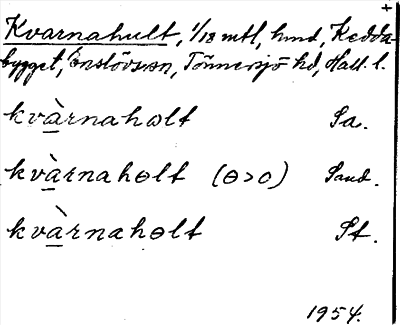 +
Kvarnahult, 1/18 mtl, hmd, Kedda-
bygget, Enslövs sn, Tönnersjö hd, Hall. l.
kvàrnahɵlt Sa.
kvàrnahɵlt (ɵ>o) Sand.
kvàrnahɵlt St.
1954.